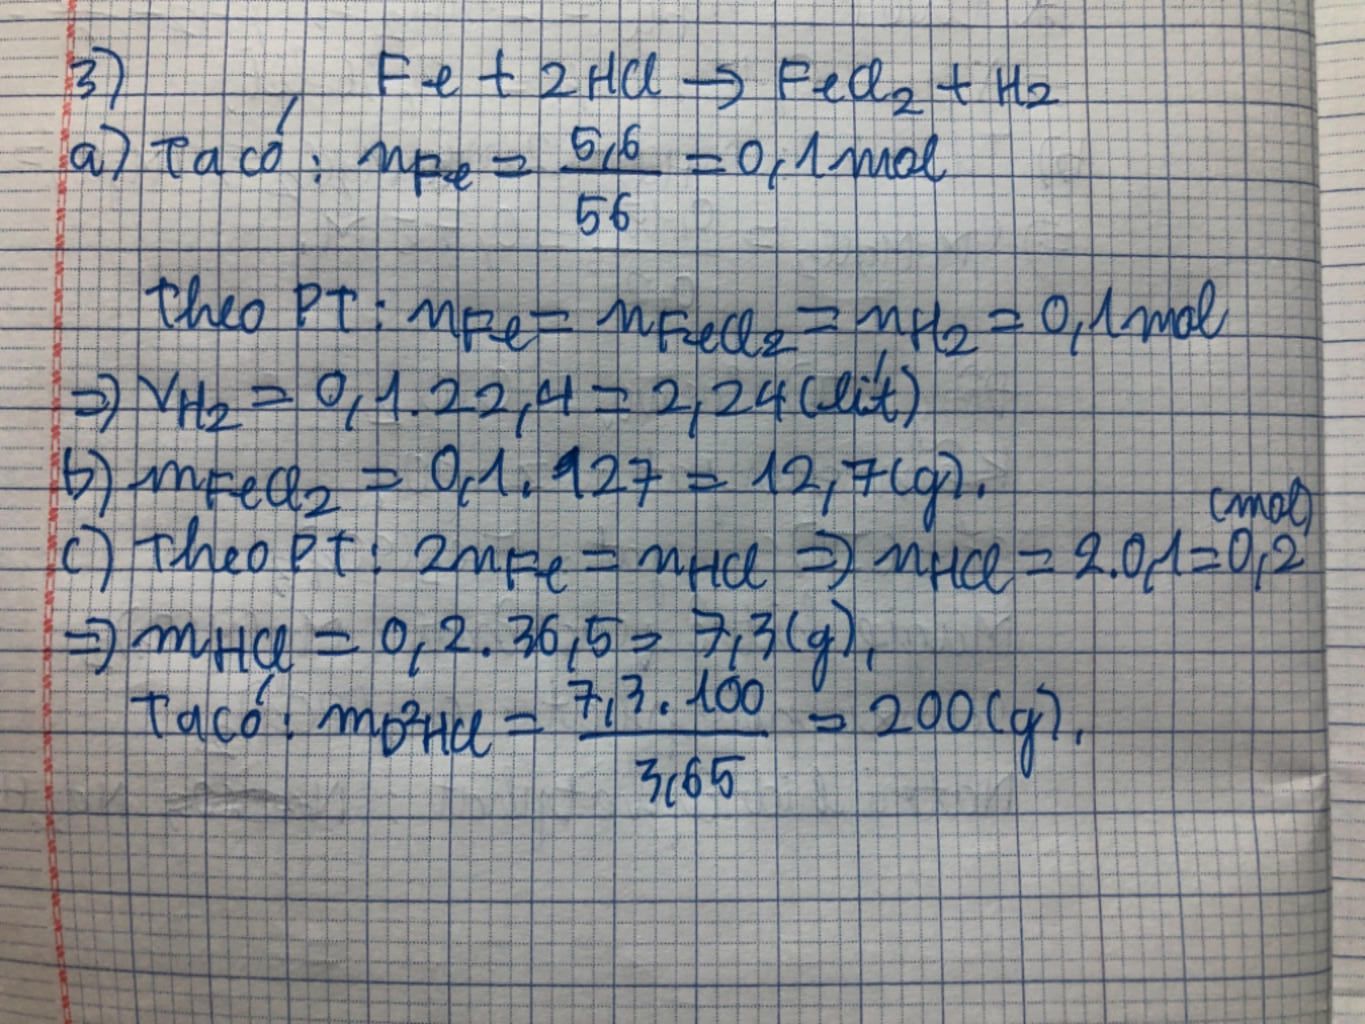 3) Fe + 2HCl → FeCl₂ + H₂
a) Ta có: nFe = 5,6/56 = 0,1 mol
theo PT: nFe = nFeCl₂ = nH₂ = 0,1 mol
=> VH₂ = 0,1.22,4 = 2,24 (lít)
b) mFeCl₂ = 0,1.127 = 12,7 (g).
c) Theo PT: 2nFe = nHCl => nHCl = 2.0,1 = 0,2 (mol)
=> mHCl = 0,2.36,5 = 7,3 (g).
Ta có: mD²HCl = 7,3.100/3,65 = 200 (g).